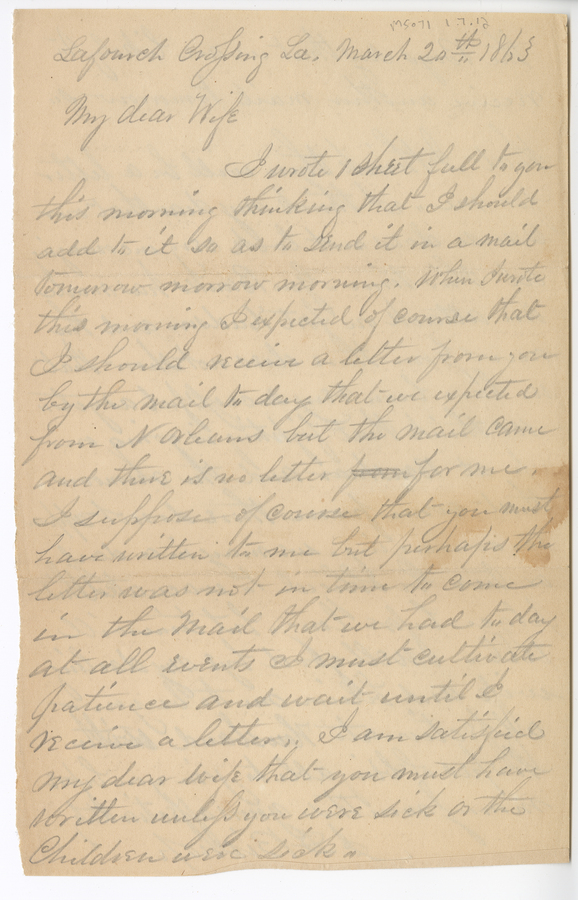 MS071 1.7.12
Lafourch Crossing La. March 20th 1863
My dear Wife
I wrote 1 sheet full to you
this morning thinking that I should
add to it so as to send it in a mail
tomorrow morrow morning. When I wrote
this morning I expected of course that
I should receive a letter from you
by the mail to day that we expected
from N Orleans but the mail came
and there is no letter from for me.
I suppose of course that you must
have written to me but perhaps the
letter was not in time to come
in the Mail that we had to day
at all events I must cultivate
patience and wait until I
receive a letter. I am satisfied
my dear wife that you must have
written unless you were sick or the
Children were sick.